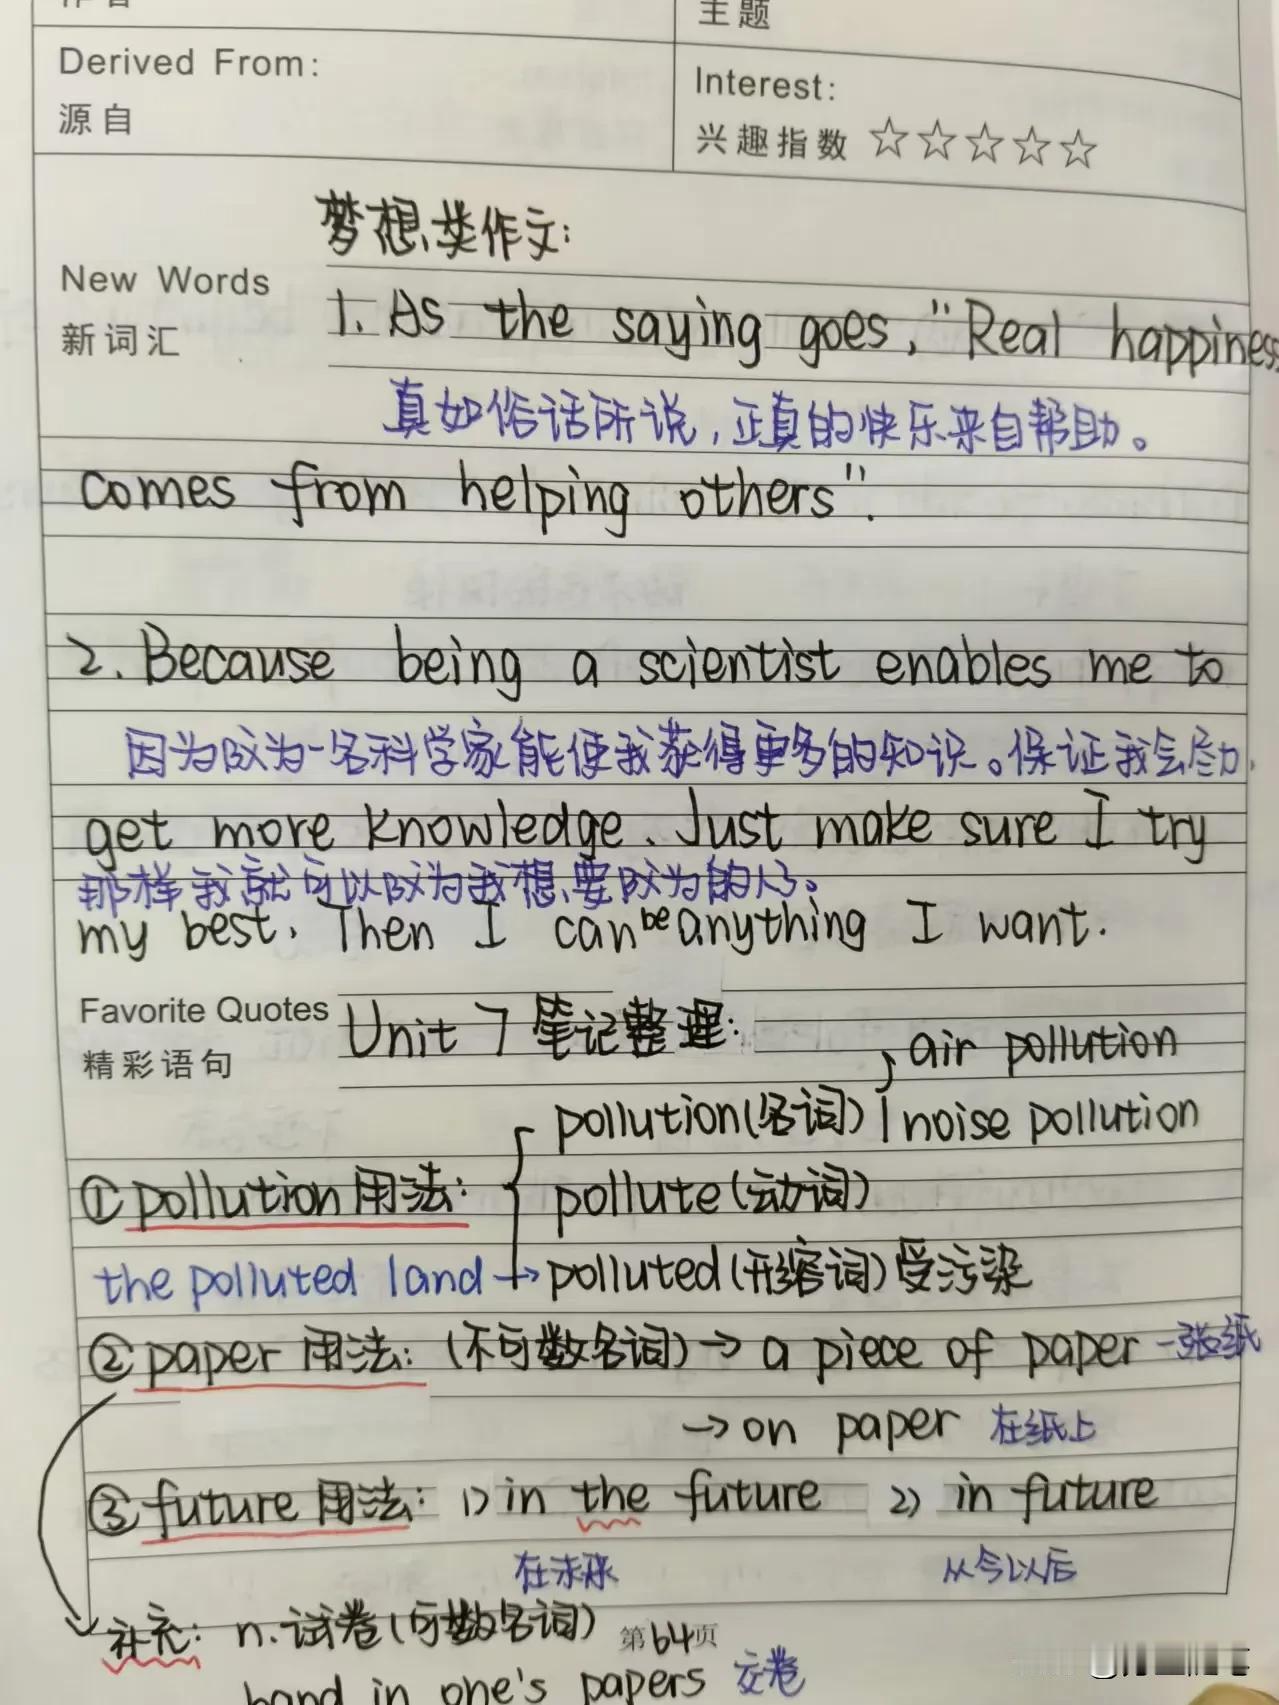 主题
Derived From:
源自
Interest:
兴趣指数 ☆☆☆☆☆
梦想类作文:
New Words
新词汇
1. As the saying goes, "Real happiness
真如俗话所说,正真的快乐来自帮助。
comes from helping others".
2. Because being a scientist enables me to
因为成为一名科学家能使我获得更多的知识。保证我会尽力,
get more knowledge. Just make sure I try
那样我就可以成为我想要成为的人了。
my best. Then I can be anything I want.
Favorite Quotes
精彩语句
Unit 7 笔记整理:
air pollution
pollution(名词) noise pollution
①pollution用法:
pollute(动词)
the polluted land→polluted(形容词)受污染
②paper用法:(不可数名词)→a piece of paper 一张纸
→on paper 在纸上
③future用法: 1) in the future 2) in future
在未来 从今以后
补充: n.试卷(可数名词)
第64页
hand in one's papers 交卷